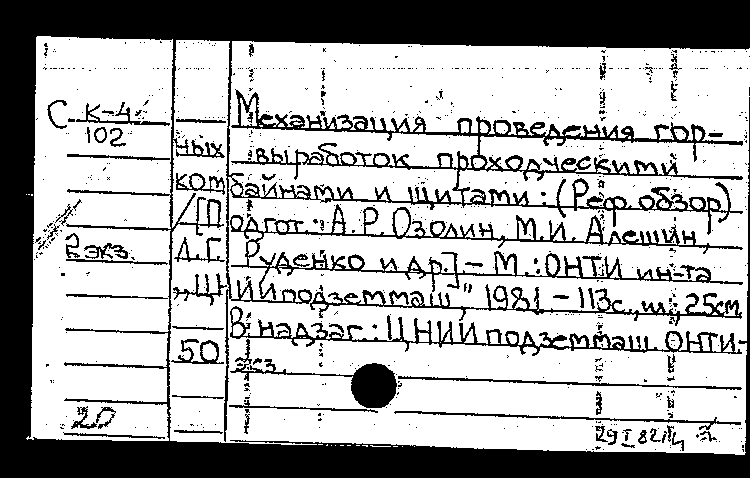 С К-4
102
Механизация проведения гор-
ных выработок проходческими
комбайнами и щитами: (Реф. обзор)
/[Подгот.: А.Р. Озолин, М.И. Алешин,
2 экз. Л.Г. Руденко и др.]. – М.: ОНТИ ин-та
„ЦНИИподземмаш", 1981. – 113 с., ил., 25см
В надзаг.: ЦНИИподземмаш. ОНТИ.-
50 экз.
20
29 I 82